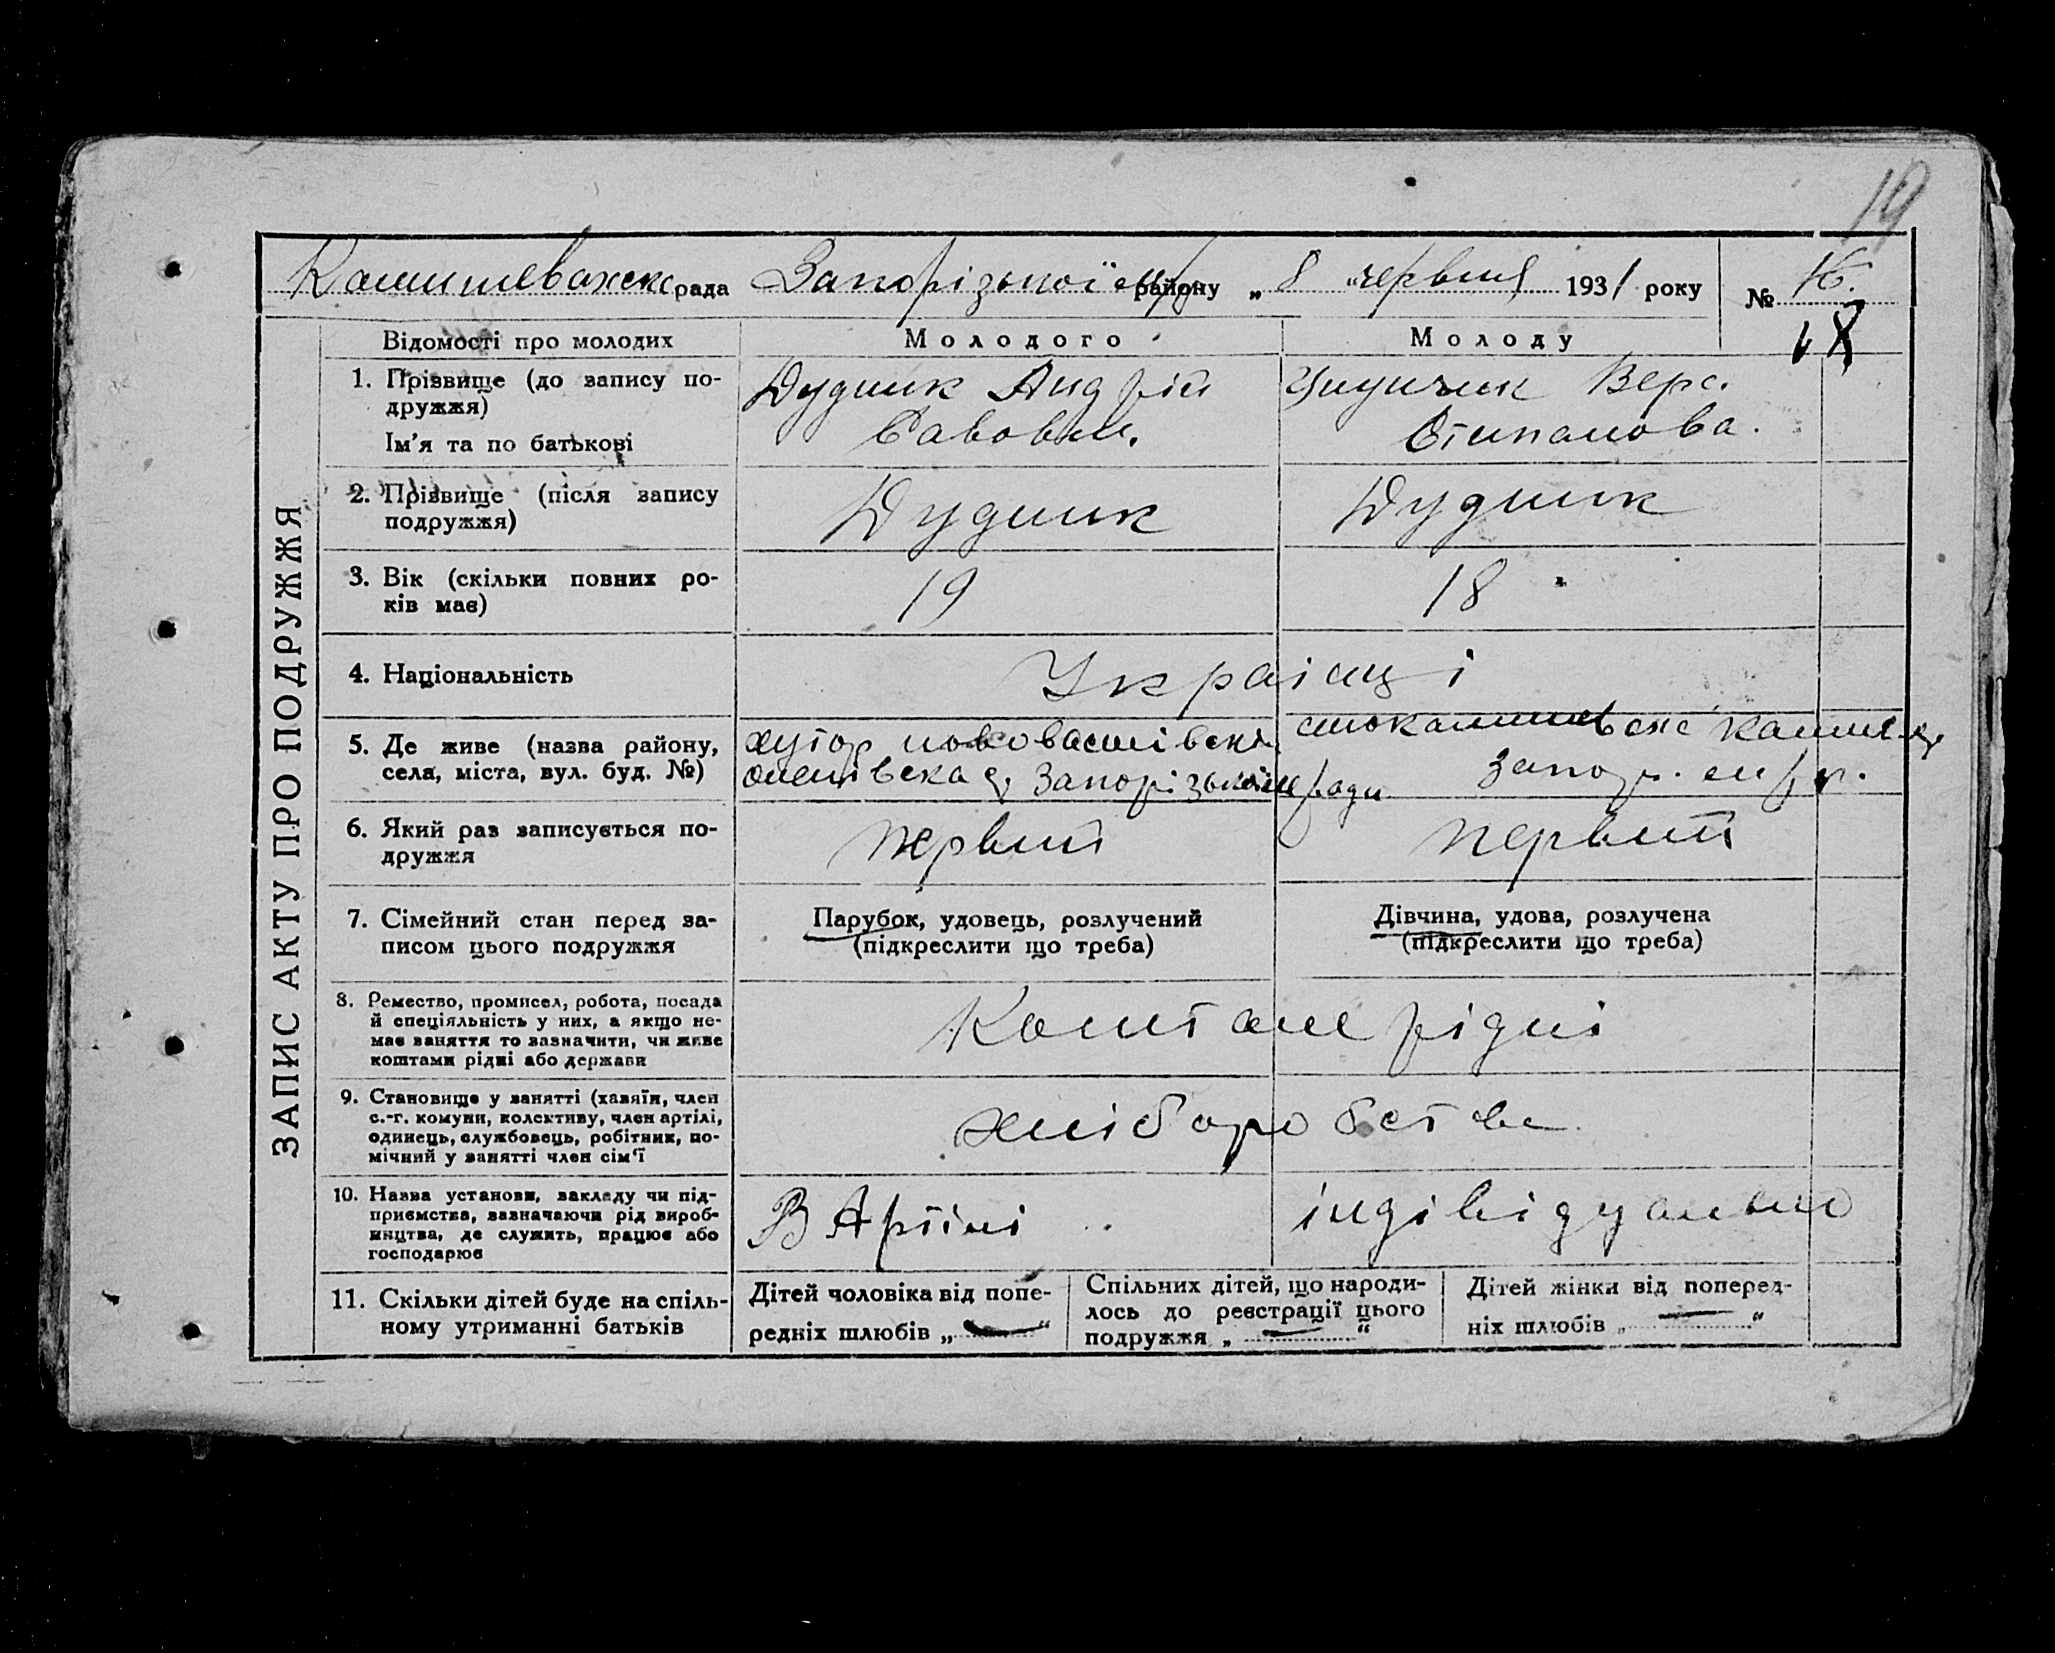 19
Комишевахска рада Запорізької м/р району „ 8 “ червня 1931 року № 16.
18
ЗАПИС АКТУ ПРО ПОДРУЖЖЯ
Відомості про молодих Молодого Молоду
1. Прізвище (до запису по-
дружжя)
Ім'я та по батькові
Дудник Андрій
Савович.
Вера
Степанова.
2. Прізвище (після запису
подружжя)
Дудник Дудник
3. Вік (скільки повних ро-
ків має)
19 18
4. Національність
Українці
5. Де живе (назва району,
села, міста, вул. буд. №)
хутор
Запорізької м/ради
Запор. м/р.
6. Який раз записується по-
дружжя
первий первий
7. Сімейний стан перед за-
писом цього подружжя
Парубок, удовець, розлучений
(підкреслити що треба)
Дівчина, удова, розлучена
(підкреслити що треба)
8. Ремество, промисел, робота, посада
й спеціяльність у них, а якщо не-
має заняття то зазначити, чи живе
коштами рідні або держави
Коштами рідні
9. Становище у занятті (хазяїн, член
с.-г. комуни, колективу, член артілі,
одинець, службовець, робітник, по-
мічний у занятті член сім'ї
хліборобства
10. Назва установи, закладу чи під-
приємства, зазначаючи рід вироб-
ництва, де служить, працює або
господарює
В Артілі індівідуально
11. Скільки дітей буде на спіль-
ному утриманні батьків
Дітей чоловіка від попе-
редніх шлюбів „ — “
Спільних дітей, що народи-
лось до реєстрації цього
подружжя „ — “
Дітей жінки від поперед-
ніх шлюбів „ — “